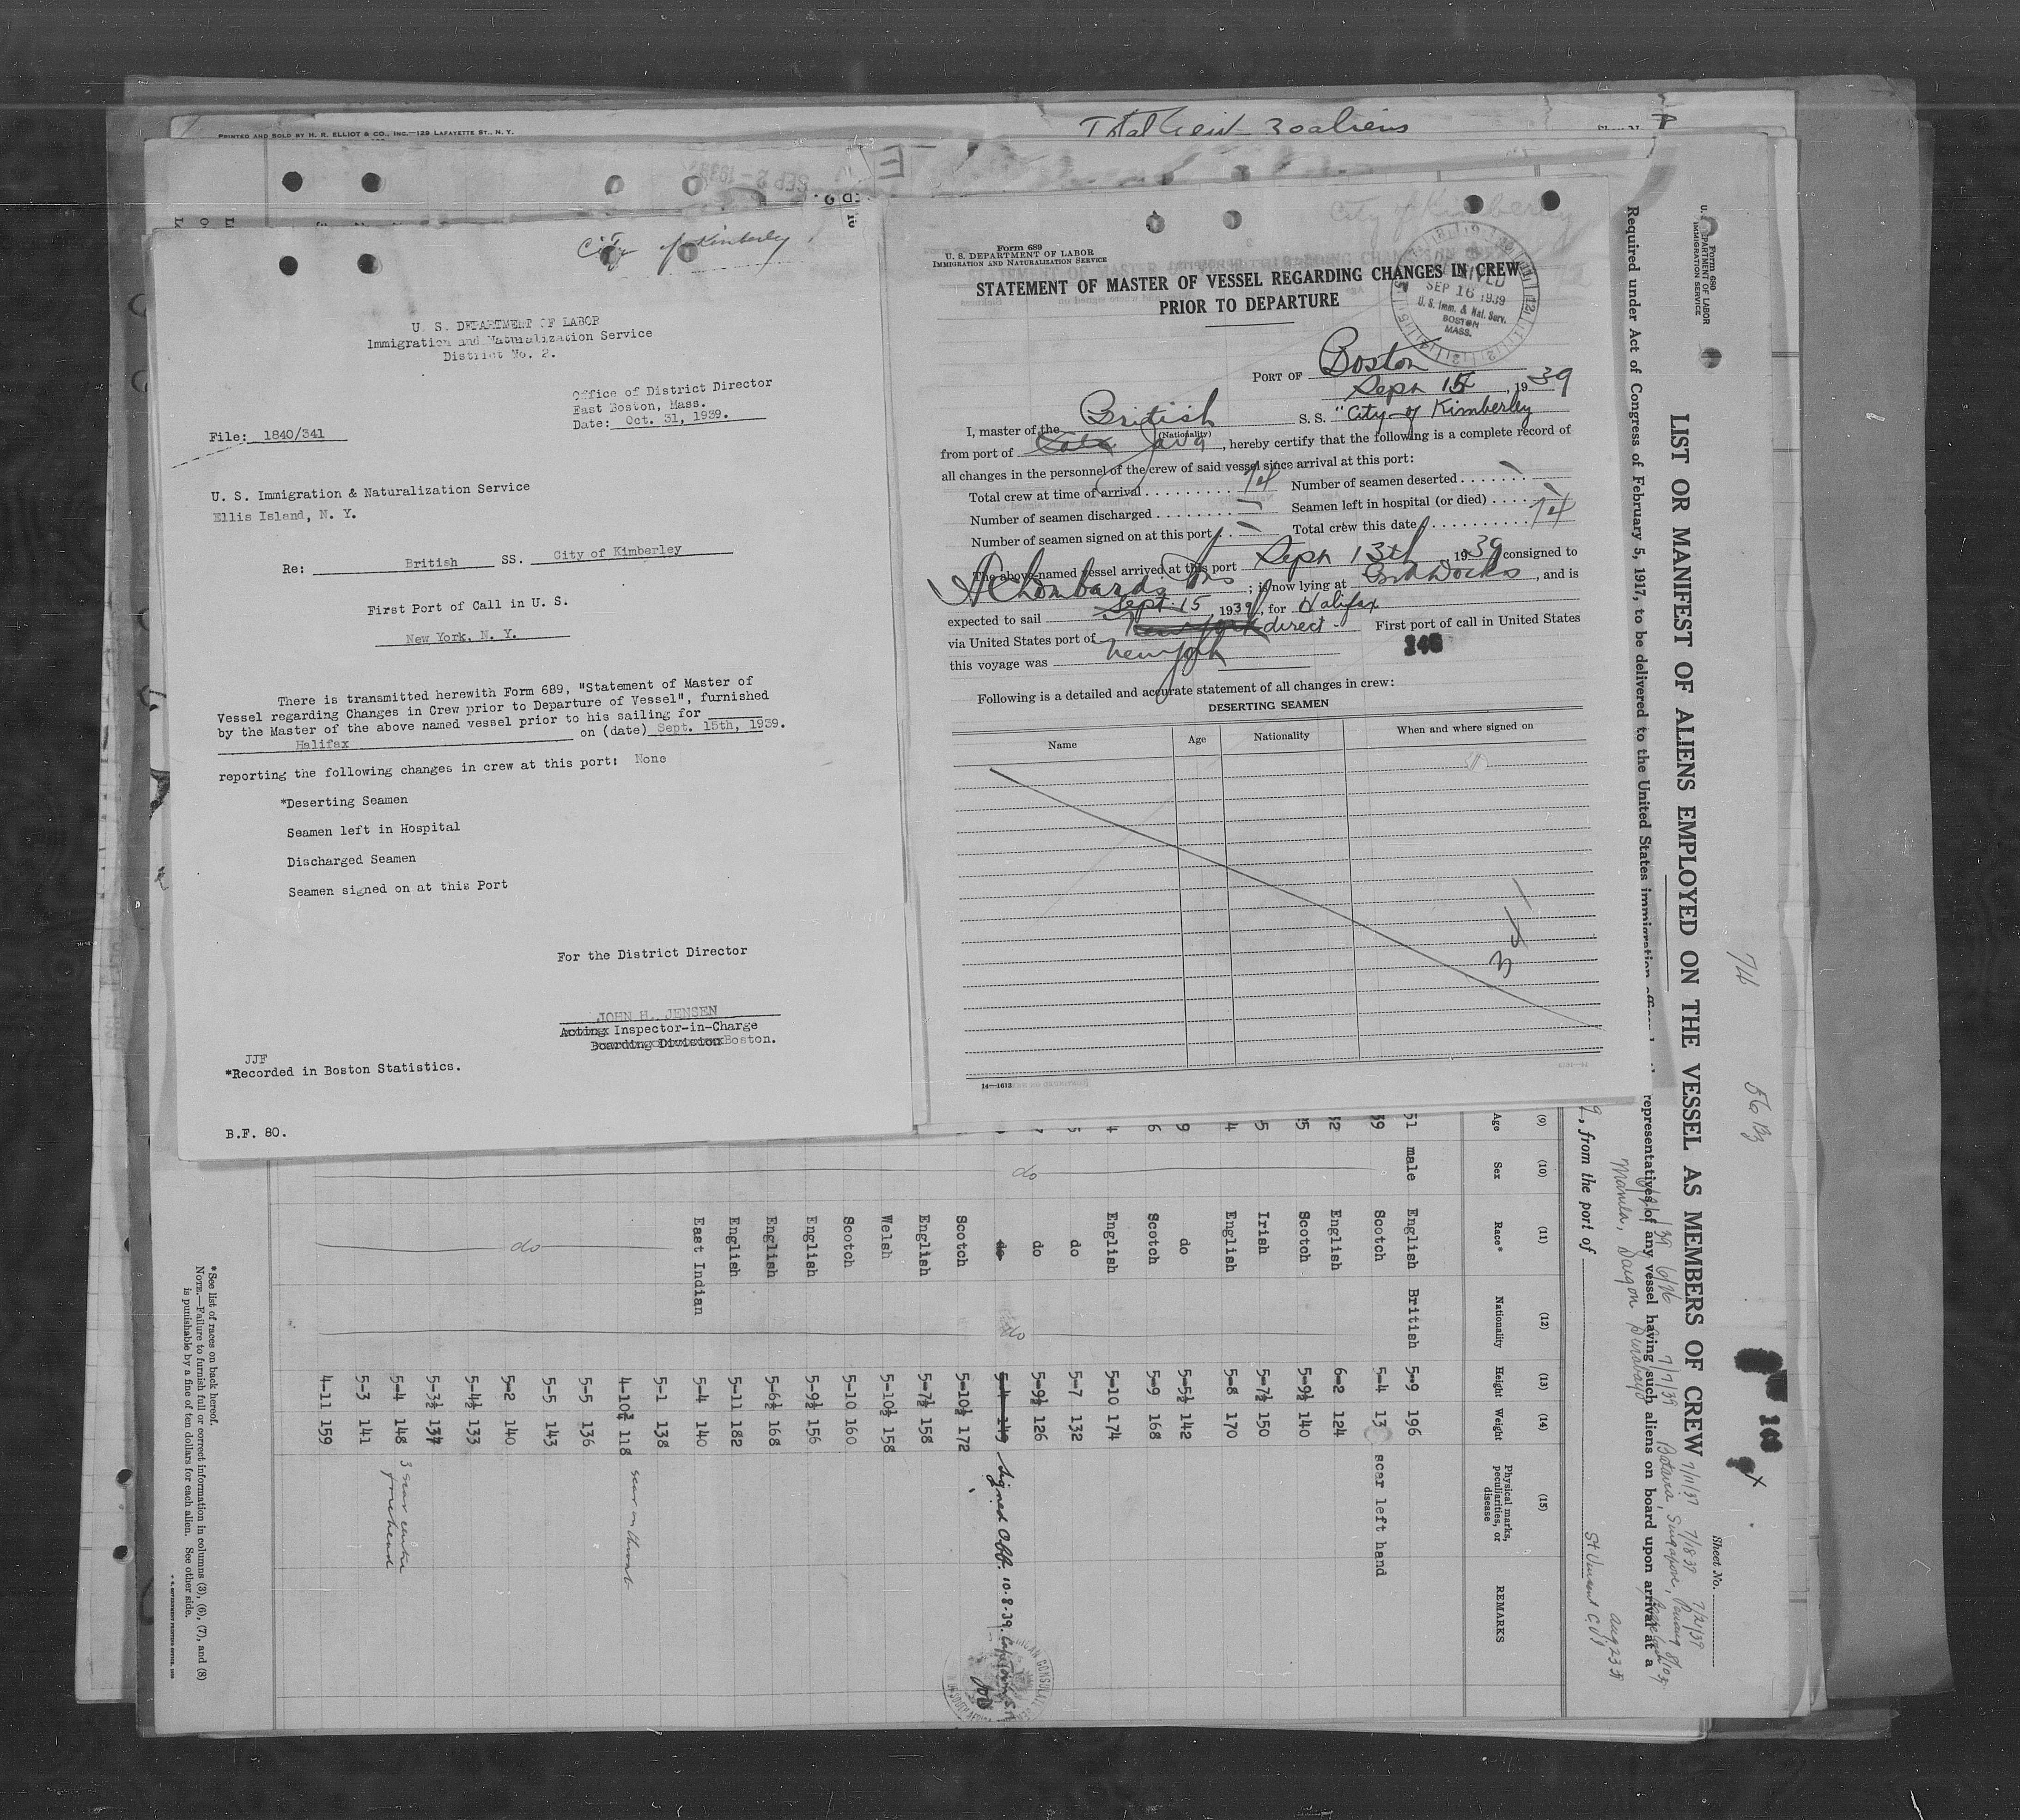 PRINTED AND SOLD BY H. R. ELLIOT & CO., INC.—129 LAFAYETTE ST., N. Y.
30 aliens
SEP 2 - 1939
City of Kimberly
U. S. DEPARTMENT OF LABOR
Immigration and Naturalization Service
District No. 2.
Office of District Director
East Boston, Mass.
Date: Oct. 31, 1939.
File: 1840/341
U. S. Immigration & Naturalization Service
Ellis Island, N. Y.
Re: British SS. City of Kimberley
First Port of Call in U. S.
New York, N. Y.
There is transmitted herewith Form 689, "Statement of Master of
Vessel regarding Changes in Crew prior to Departure of Vessel", furnished
by the Master of the above named vessel prior to his sailing for
Halifax on (date) Sept. 15th, 1939.
reporting the following changes in crew at this port: None
*Deserting Seamen
Seamen left in Hospital
Discharged Seamen
Seamen signed on at this Port
For the District Director
JOHN H. JENSEN
Acting Inspector-in-Charge
Boarding Division Boston.
JJF
*Recorded in Boston Statistics.
B.F. 80.
City of Kimberley
Form 689
U. S. DEPARTMENT OF LABOR
IMMIGRATION AND NATURALIZATION SERVICE
STATEMENT OF MASTER OF VESSEL REGARDING CHANGES IN CREW
PRIOR TO DEPARTURE
SEP 16 1939
U. S. Imm. & Nat. Serv.
BOSTON
MASS.
PORT OF Boston
Sepn 15, 1939
I, master of the British S. S. "City of Kimberley
(Nationality)
from port of Java, hereby certify that the following is a complete record of
all changes in the personnel of the crew of said vessel since arrival at this port:
Total crew at time of arrival 74 Number of seamen deserted
Number of seamen discharged Seamen left in hospital (or died)
Number of seamen signed on at this port Total crew this date 74
The above-named vessel arrived at this port Sepn 13th, 1939 consigned to
; is now lying at , and is
expected to sail Sept. 15, 1939, for Halifax
via United States port of New York direct - First port of call in United States
this voyage was New York
Following is a detailed and accurate statement of all changes in crew:
DESERTING SEAMEN
Name Age Nationality When and where signed on
14—1613
Form 680
U. S. DEPARTMENT OF LABOR
IMMIGRATION SERVICE
Sheet No.
LIST OR MANIFEST OF ALIENS EMPLOYED ON THE VESSEL AS MEMBERS OF CREW
Required under Act of Congress of February 5, 1917, to be delivered to the United States immigration representatives of any vessel having such aliens on board upon arrival at a
, from the port of St Vincent
74
(9) (10) (11) (12) (13) (14) (15)
Age Sex Race* Nationality Height Weight Physical marks, peculiarities, or disease REMARKS
51 male English British 5-9 196
Scotch 5-4 13 scar left hand
English 6-2 124
Scotch 5-9½ 140
Irish 5-7½ 150
English 5-8 170
do 5-5½ 142
Scotch 5-9 168
English 5-10 174
do 5-7 132
do 5-9½ 126
do do do 5-4 149 Signed Off. 10.8.39.
Scotch 5-10½ 172
English 5-7½ 158
Welsh 5-10½ 158
Scotch 5-10 160
English 5-9½ 156
English 5-6½ 168
English 5-11 182
East Indian 5-4 140
5-1 138
4-10¾ 118 scar on throat
5-5 136
5-5 143
do 5-2 140
5-4½ 133
5-3½ 137
5-4 148 scar centre forehead
5-3 141
4-11 159
*See list of races on back hereof.
NOTE.—Failure to furnish full or correct information in columns (3), (6), (7), and (8)
is punishable by a fine of ten dollars for each alien. See other side.